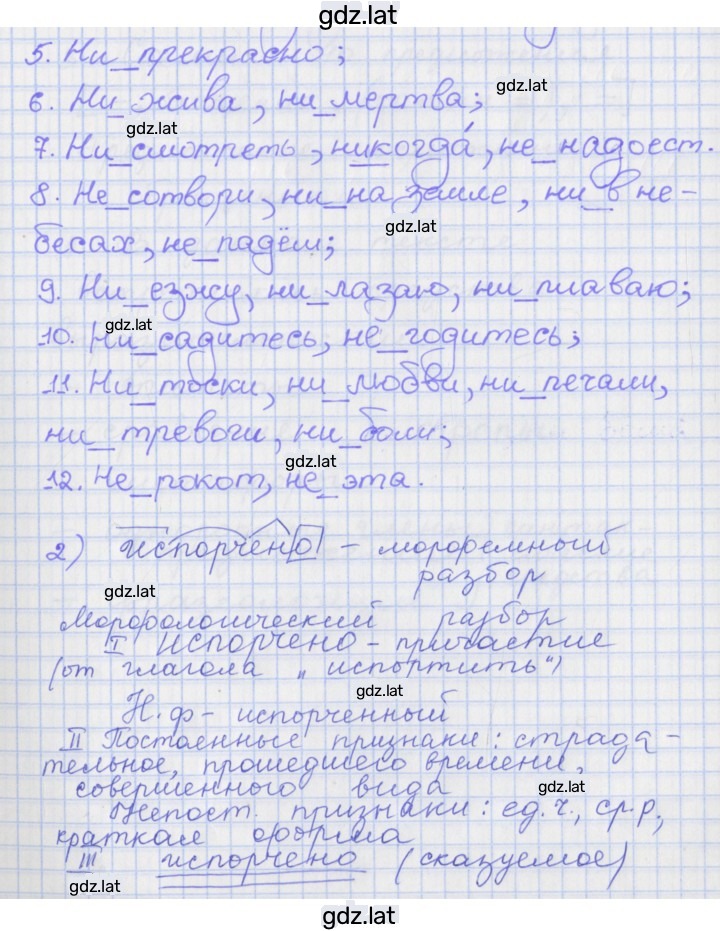 gdz.lat
5. Ни_прекрасно;
6. Ни_жива, ни_мертва;
gdz.lat
gdz.lat
7. Ни_смотреть, никогда́, не_надоест.
8. Не_сотвори, ни_на земле, ни_в не-
gdz.lat
бесах, не_падём;
9. Ни_езжу, ни_лазаю, ни_плаваю;
gdz.lat
10. Ни_садитесь, не_годитесь;
11. Ни_тоски, ни_любви, ни_печали,
ни_тревоги, ни_боли;
gdz.lat
12. Не_рокот, не_эта.
2) испорчено – морфемный
разбор
gdz.lat
Морфологический разбор
I испорчено – причастие
(от глагола „испортить“)
gdz.lat
Н.ф – испорченный
II Постоянные признаки: страда-
тельное, прошедшего времени,
совершенного вида
gdz.lat
Непост. признаки: ед.ч., ср.р,
краткая форма
III испорчено (сказуемое)
gdz.lat
gdz.lat